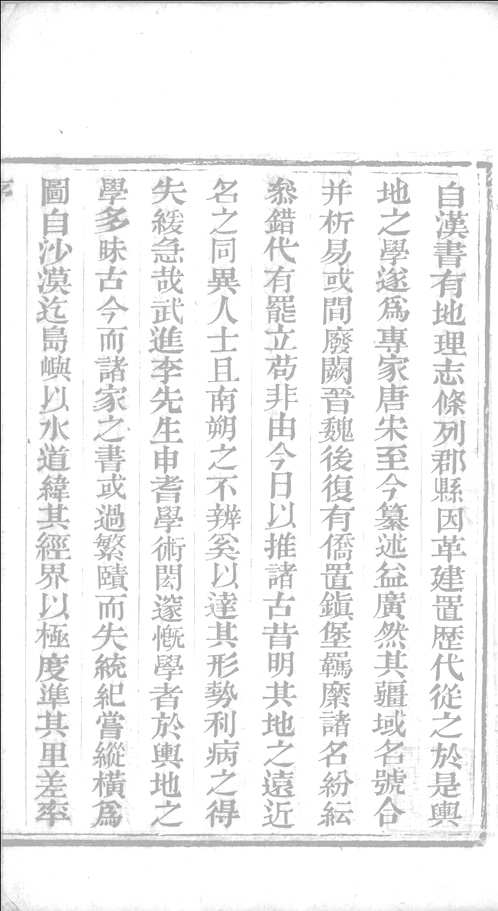 自漢書有地理志條列郡縣因革建置歷代從之於是輿
地之學遂爲專家唐宋至今纂述益廣然其疆域名號合
并析易或間廢闕晉魏後復有僑置鎭堡羈縻諸名紛紜
叅錯代有罷立苟非由今日以推諸古昔明其地之遠近
名之同異人士且南朔之不辨奚以達其形勢利病之得
失緩急哉武進李先生申耆學術閎邃慨學者於輿地之
學多昧古今而諸家之書或過繁賾而失統紀嘗縱橫爲
圖自沙漠迄島嶼以水道緯其經界以極度準其里差率
序